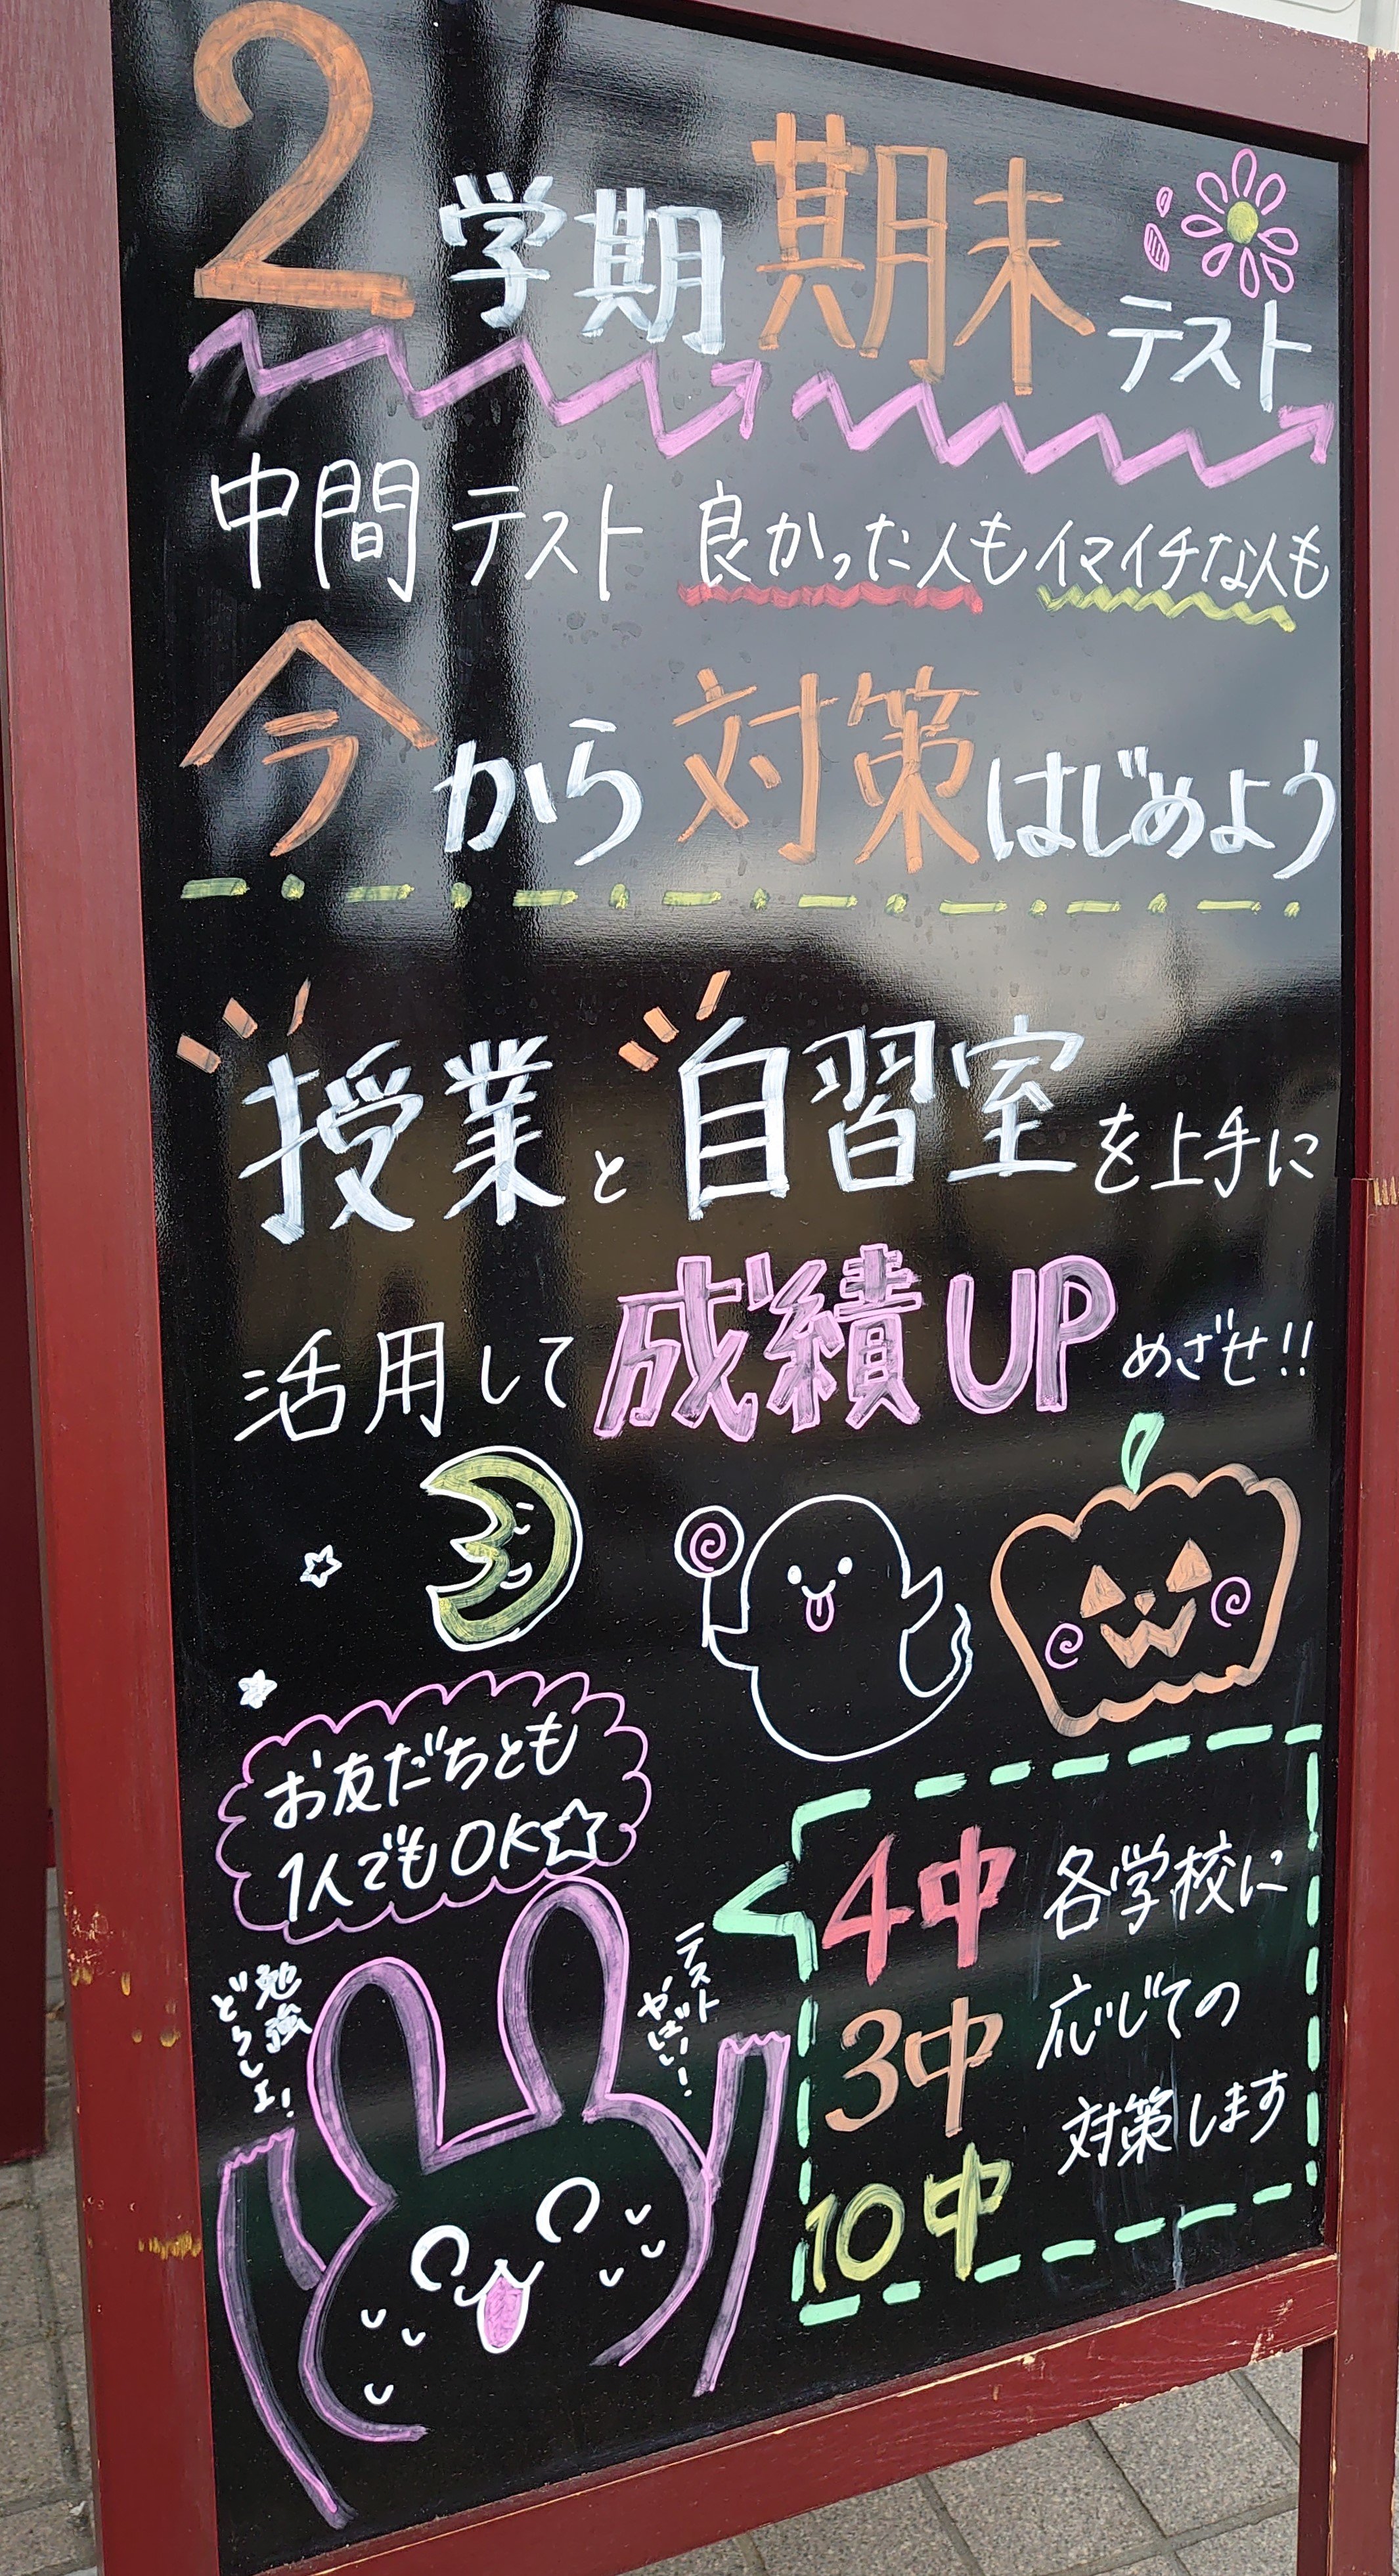 2学期期末テスト
中間テスト 良かった人もイマイチな人も
今から対策はじめよう
授業と自習室を上手に
活用して成績UPめざせ!!
お友だちとも
1人でもOK☆
勉強
どうしよ!
テスト
やばい!
4中
3中
10中
各学校に
応じての
対策します